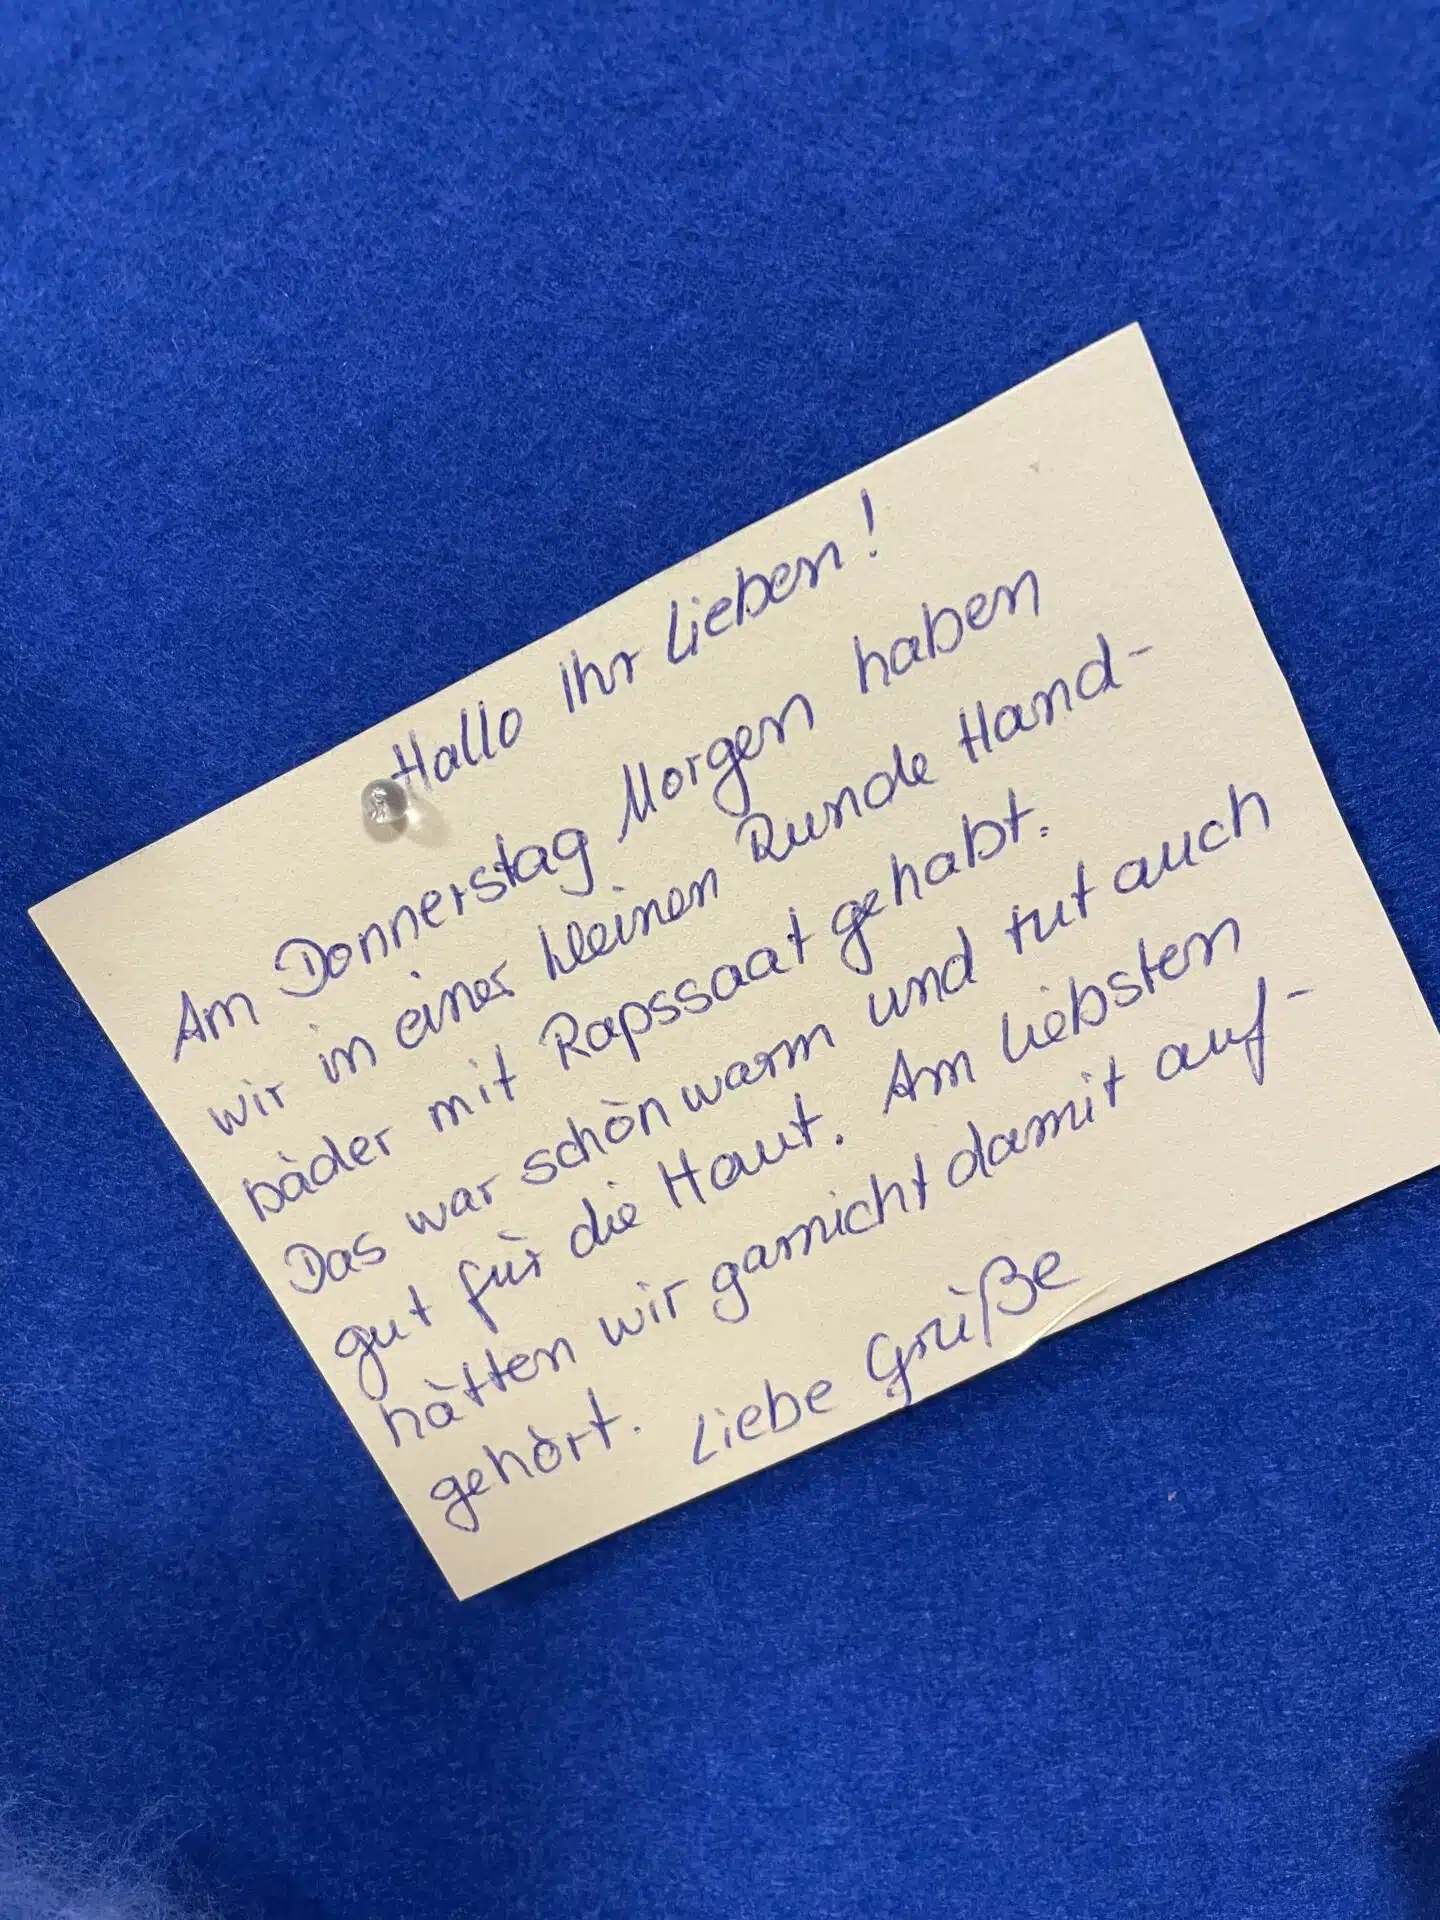 Hallo Ihr Lieben!
Am Donnerstag Morgen haben
wir in einer kleinen Runde Hand-
bäder mit Rapssaat gehabt.
Das war schön warm und tut auch
gut für die Haut. Am liebsten
hätten wir garnicht damit auf-
gehört. Liebe Grüße